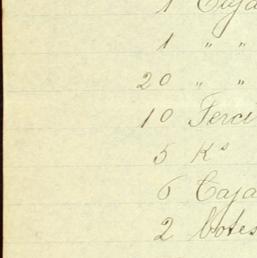 1 Caja
1 " "
20 " "
10 Terci
5 Ks
6 Caja
2 botes